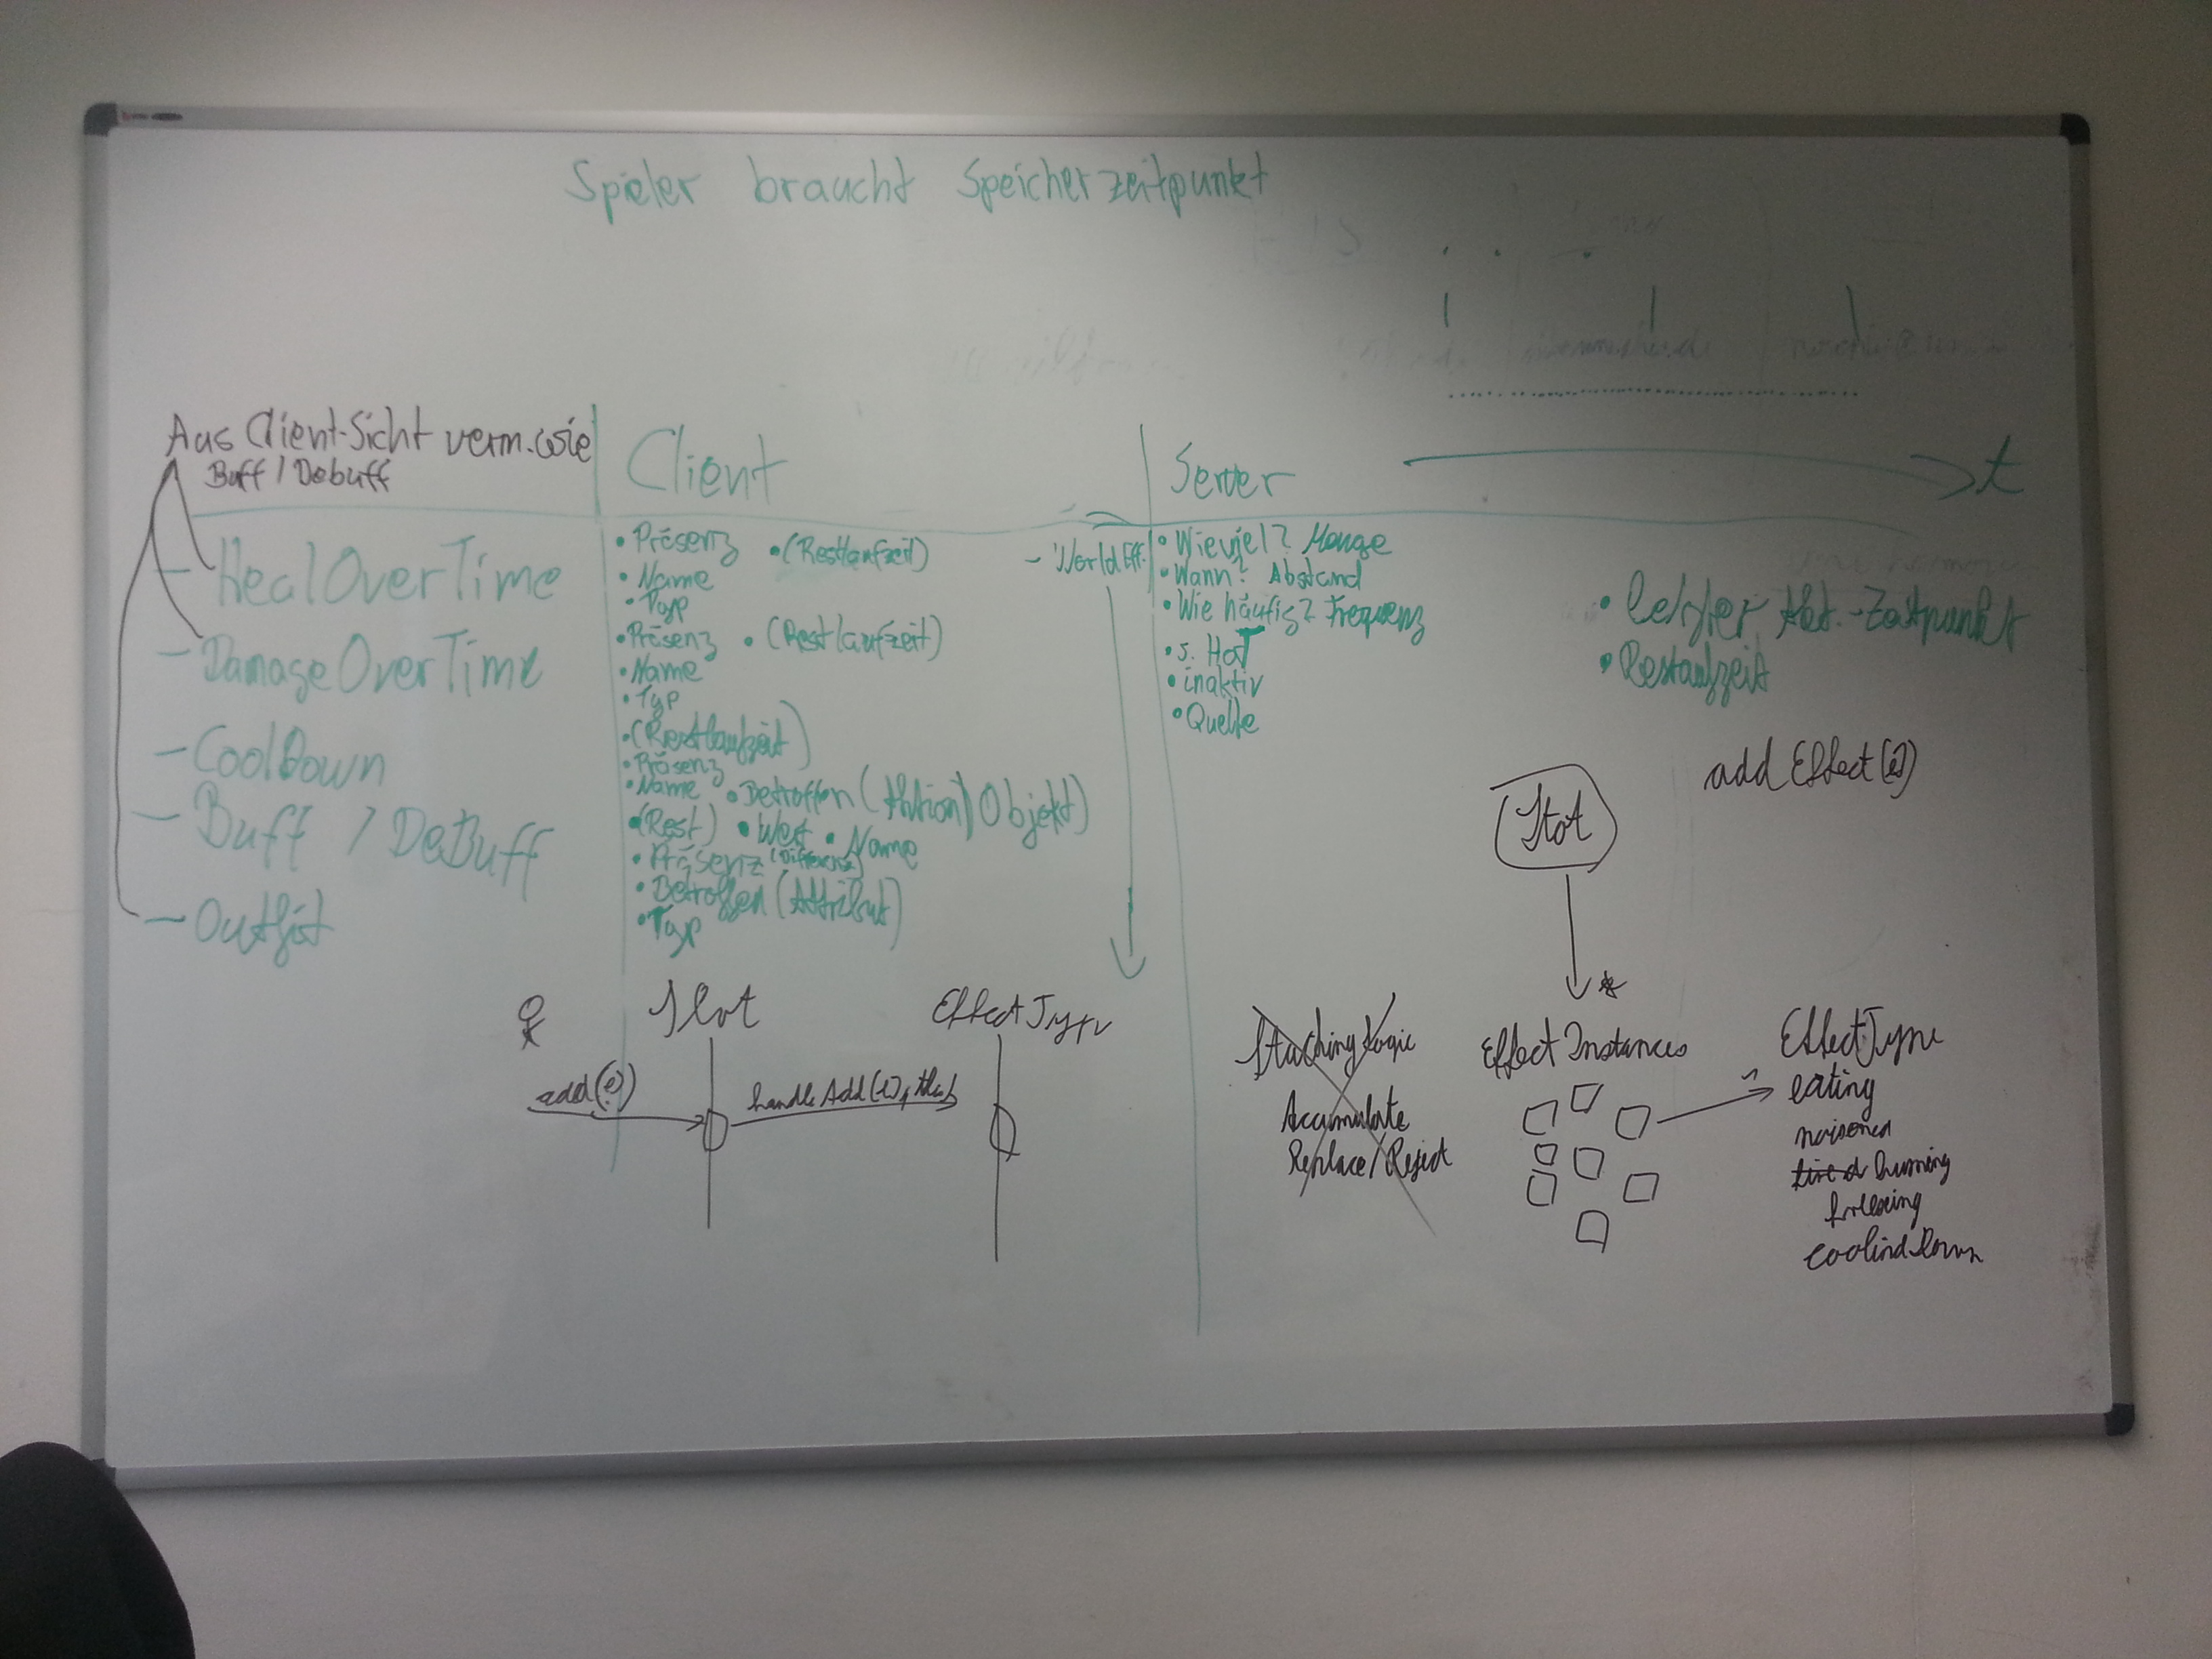 Spieler braucht Speicherzeitpunkt
Aus Client-Sicht verm. wie
Buff / Debuff
Client
Server
t
- HealOverTime
- DamageOverTime
- CoolDown
- Buff / DeBuff
- Outfit
• Präsenz • (Restlaufzeit)
• Name
• Typ
• Präsenz • (Restlaufzeit)
• Name
• Typ
• (Restlaufzeit)
• Präsenz
• Name • Betroffen (Aktion/Objekt)
• (Rest) • Wert • Name
• Präsenz (Differenz)
• Betroffen (Attribut)
• Typ
- World Eff.
• Wieviel? Menge
• Wann? Abstand
• Wie häufig? Frequenz
• s. HoT
• inaktiv
• Quelle
• letzter Akt.-Zeitpunkt
• Restlaufzeit
add Effect(e)
Slot
*
Slot
EffectType
add(e)
handleAdd(e, this)
Stacking Logic
Accumulate
Replace/Reject
Effect Instances
EffectType
eating
poisoned
tired burning
freezing
coolindown